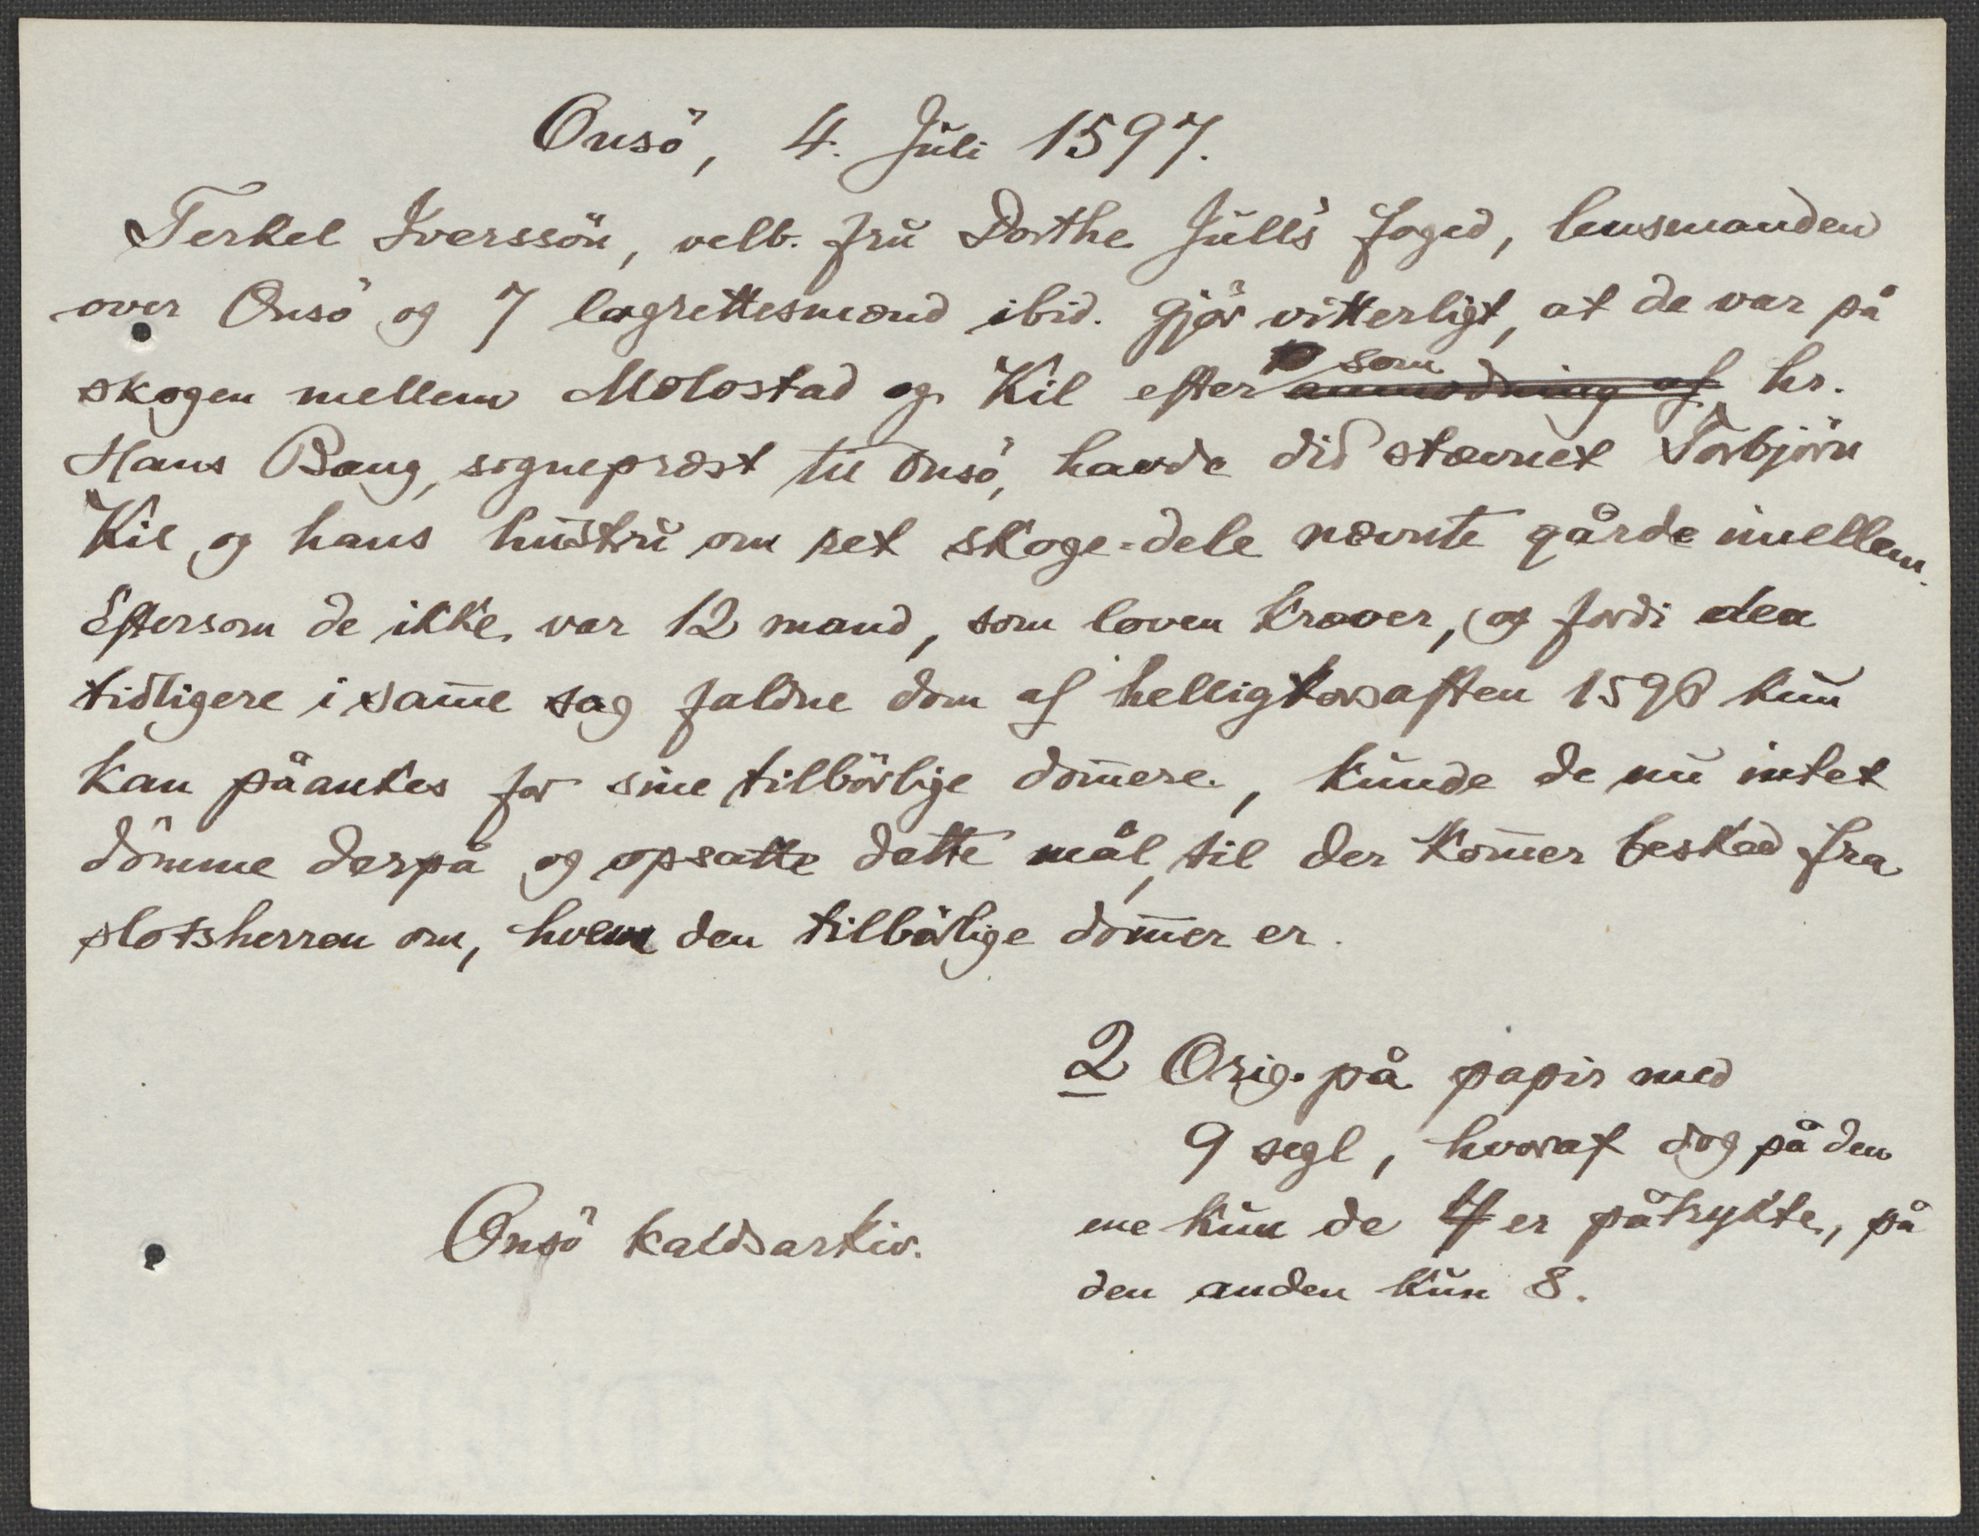 Onsö, 4. Juli 1597.
Terkel Iverssön, velb. fru Dorthe Jull's foged, lensmanden
over Onsö og 7 lagrettesmænd ibid. gjör vitterligt, at de var på
skogen mellem Molostad og Kil efter som hr.
Hans Bang, sogneprest til Onsö, havde did stævnet Torbjörn
Kil og hans hustru om ret skoge-dele nævnte gårde imellem.
Eftersom de ikke var 12 mænd, som loven kræver, og fordi den
tidligere i sam̄e sag faldne dom af helligkorsaften 1596 kun
kan påankes for sine tilbörlige dom̄ere, kunde de nu intet
dömme derpå og opsatte dette mål, til der kom̄er besked fra
slotsherren om, hvem den tilbörlige dom̄er er.
2 Orig. på papir med
9 segl, hvoraf dog på den
ene kun de 4 er påtrykte, på
den anden kun 8.
Onsö kaldsarkiv.